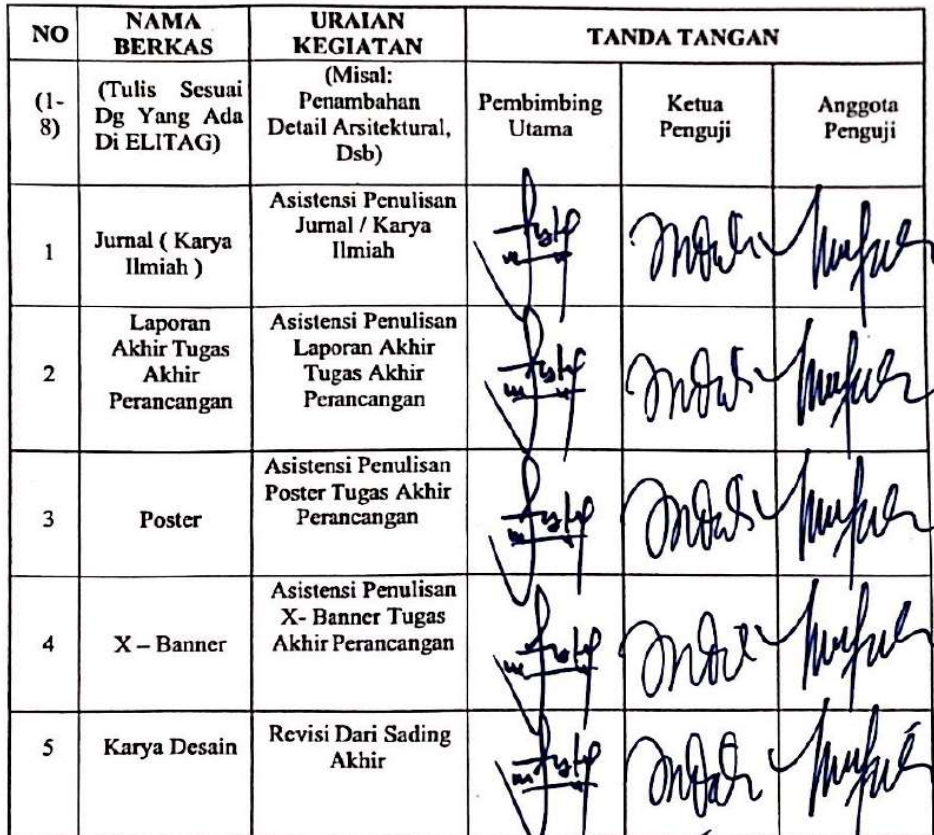 NO
NAMA
BERKAS
URAIAN
KEGIATAN
TANDA TANGAN
(1-
8)
(Tulis Sesuai
Dg Yang Ada
Di ELITAG)
(Misal:
Penambahan
Detail Arsitektural,
Dsb)
Pembimbing
Utama
Ketua
Penguji
Anggota
Penguji
1
Jurnal ( Karya
Ilmiah )
Asistensi Penulisan
Jurnal / Karya
Ilmiah
2
Laporan
Akhir Tugas
Akhir
Perancangan
Asistensi Penulisan
Laporan Akhir
Tugas Akhir
Perancangan
3
Poster
Asistensi Penulisan
Poster Tugas Akhir
Perancangan
4
X – Banner
Asistensi Penulisan
X- Banner Tugas
Akhir Perancangan
5
Karya Desain
Revisi Dari Sading
Akhir